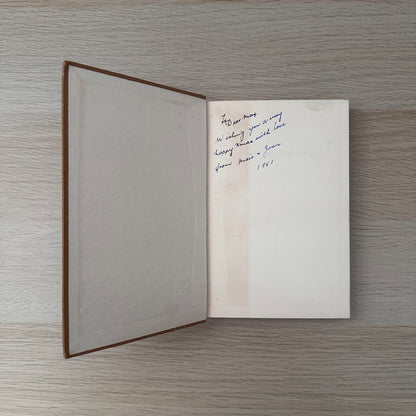 To
Dear Max
Wishing you a very
happy Xmas with love
from Marr & Joan
1951.